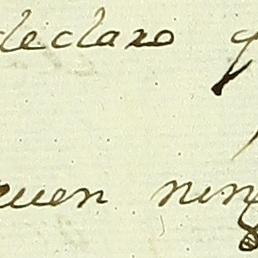 declaro q
quen ning